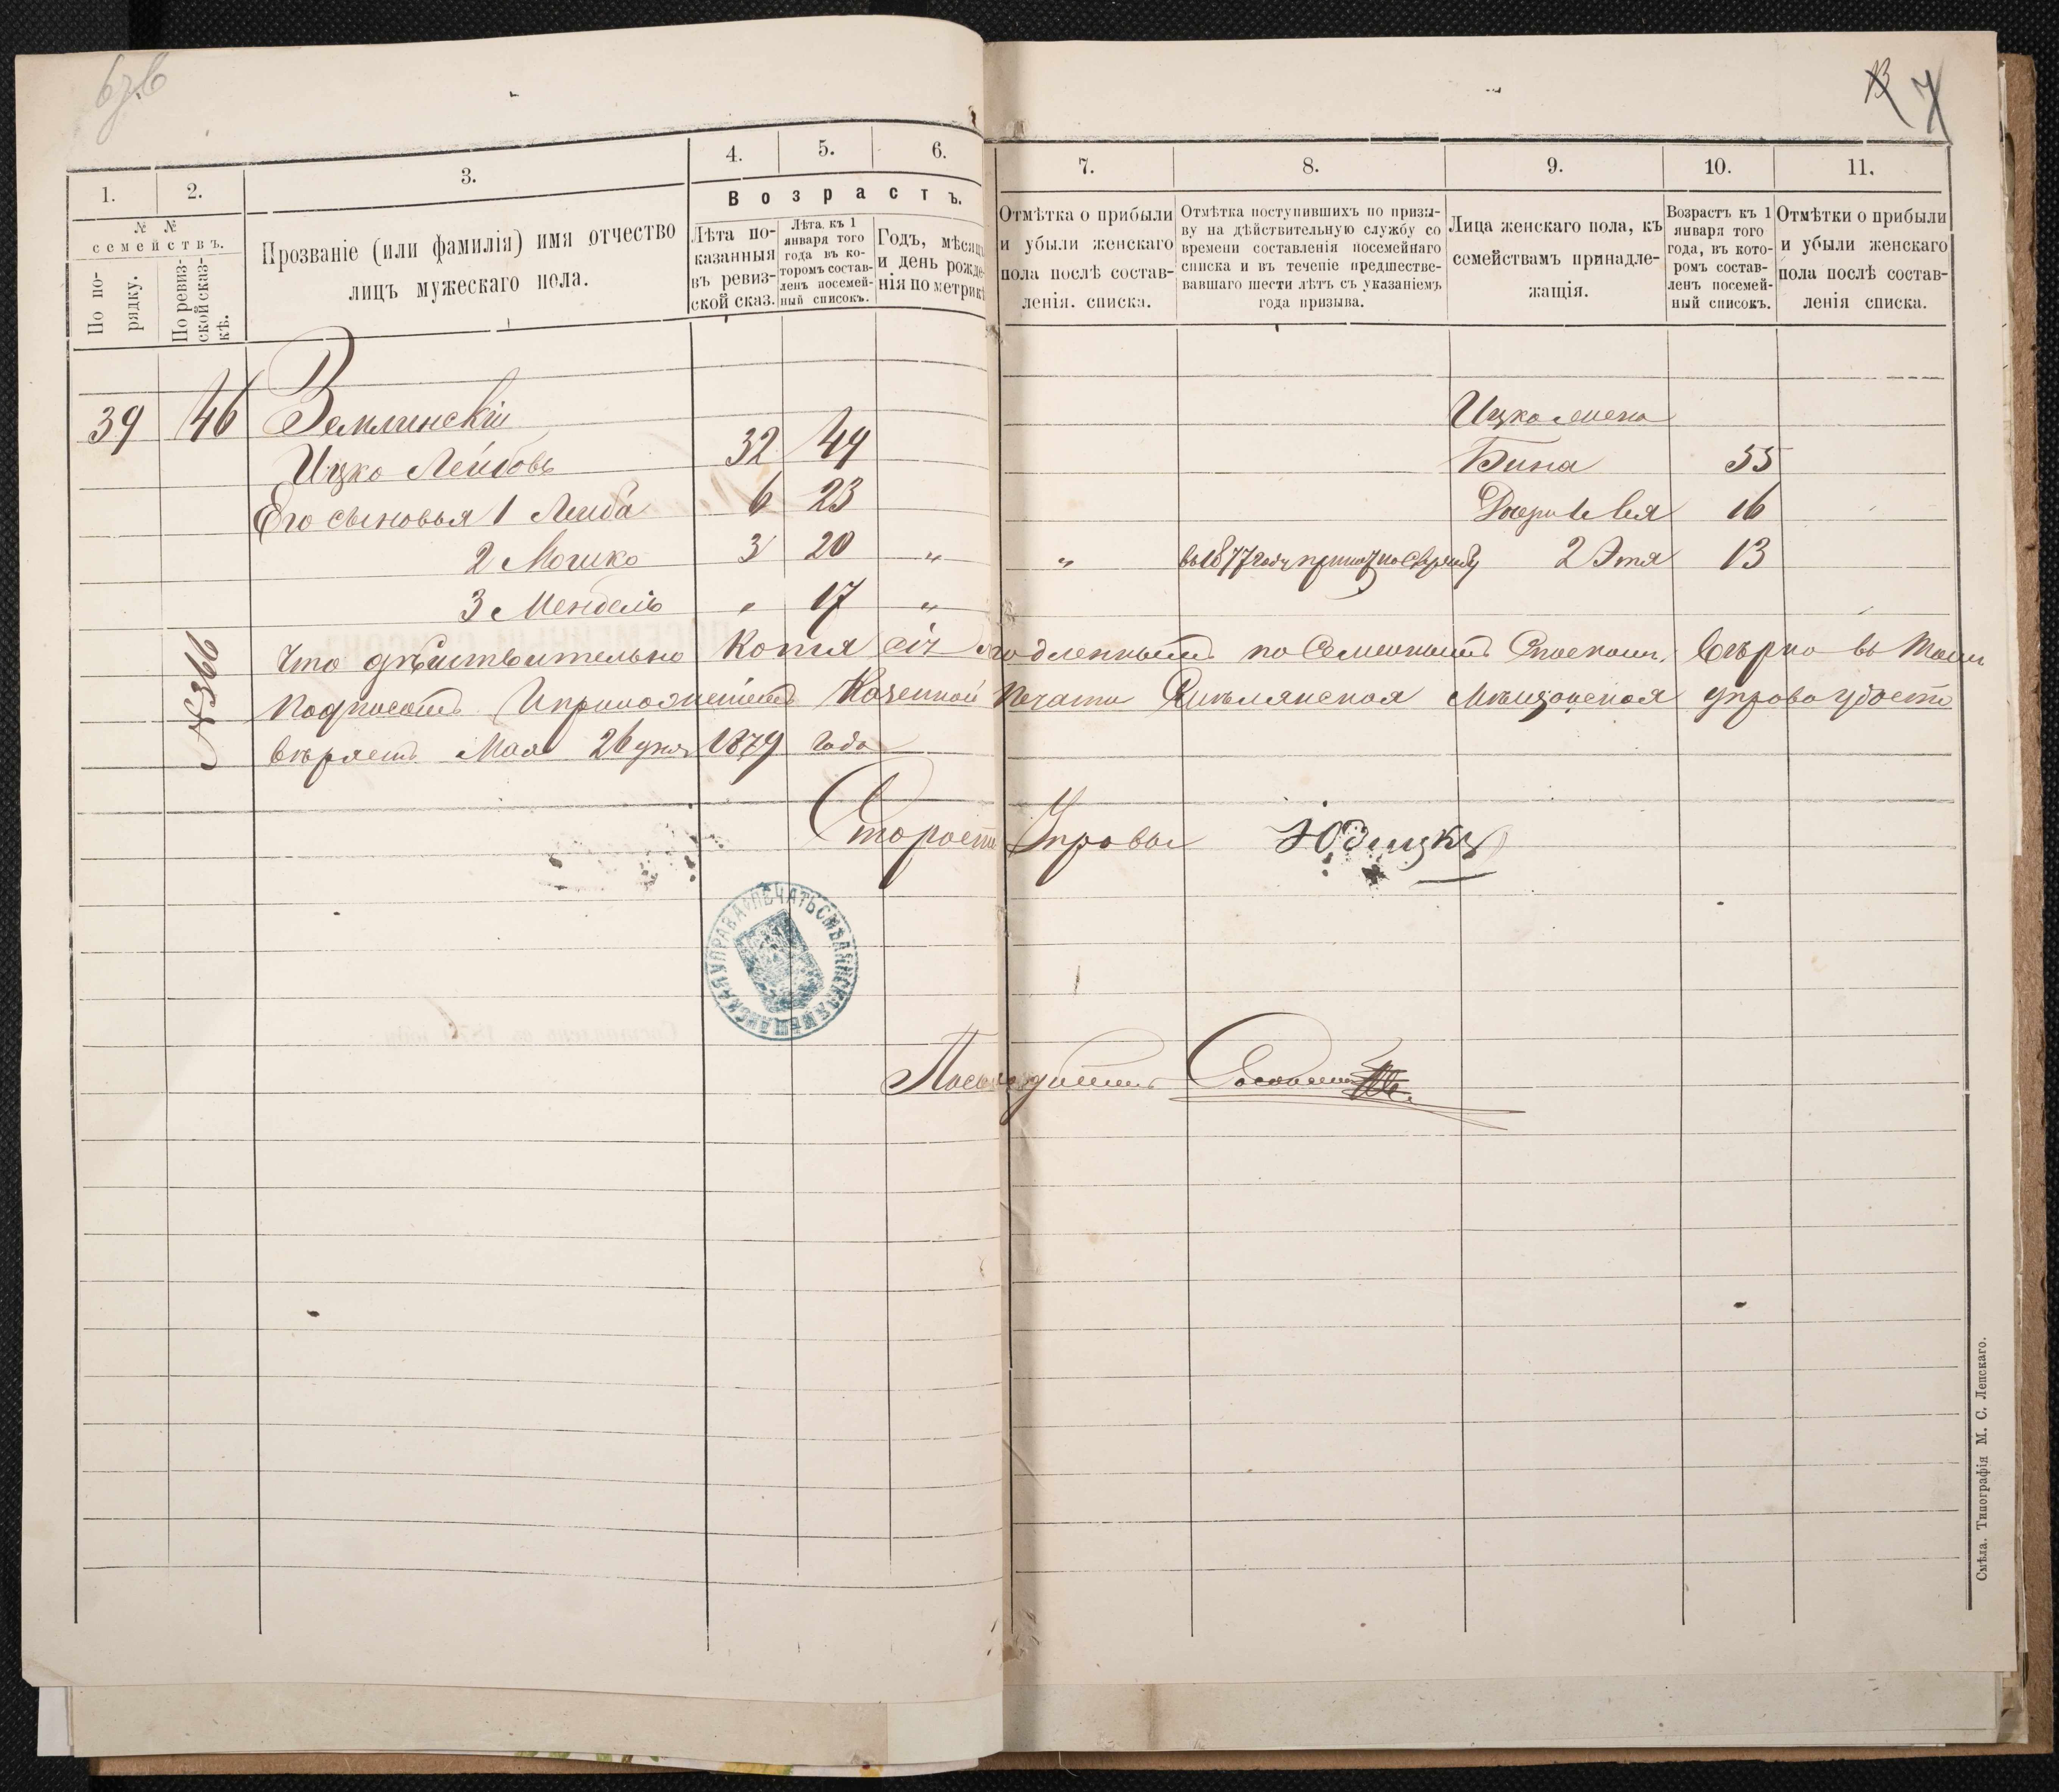 1.
2.
3.
4.
5.
6.
7.
8.
9.
10.
11.
№ №
семействъ.
По по-
рядку.
По ревиз-
ской сказ-
кѣ.
Прозваніе (или фамилія) имя отчество
лицъ мужескаго пола.
Возрастъ.
Лѣта по-
казанныя
въ ревиз-
ской сказ.
Лѣта. къ 1
января того
года въ ко-
торомъ состав-
ленъ посемей-
ный списокъ.
Годъ, мѣсяцъ
и день рожде-
нія по метрикѣ
Отмѣтка о прибыли
и убыли женскаго
пола послѣ состав-
ленія. списка.
Отмѣтка поступившихъ по призы-
ву на дѣйствительную службу со
времени составленія посемейнаго
списка и въ теченіе предшество-
вавшаго шести лѣтъ съ указаніемъ
года призыва.
Лица женскаго пола, къ
семействамъ принадле-
жащія.
Возрастъ къ 1
января того
года, въ кото-
ромъ состав-
ленъ посемей-
ный списокъ.
Отмѣтки о прибыли
и убыли женскаго
пола послѣ состав-
ленія списка.
39 46 Землинскій
Ицка жена
Ицко Лейбовъ 32 49
Бина 55
Его сыновья 1 Лейба 6 23
16
2 Мошко 3 20 „ „ въ 1877 году 2 Этя 13
3 Мендель „ 17 „
№366
Что дѣйствительно копія сія по Семейнымъ Спискамъ вѣрна въ томъ
подписомъ и приложеніемъ Казенной печати Смѣлянская Мѣщанская управа удосто
вѣряетъ Мая 26 дня 1879 года
Староста Управы
ПЕЧАТЬ СМѢЛЯНСКАЯ МѢЩАНСКАЯ УПРАВА
Смѣла. Типографія М. С. Лепскаго.